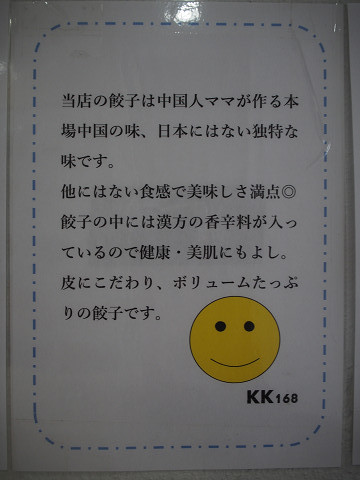 当店の餃子は中国人ママが作る本
場中国の味、日本にはない独特な
味です。
他にはない食感で美味しさ満点◎
餃子の中には漢方の香辛料が入っ
ているので健康・美肌にもよし。
皮にこだわり、ボリュームたっぷ
りの餃子です。
KK168